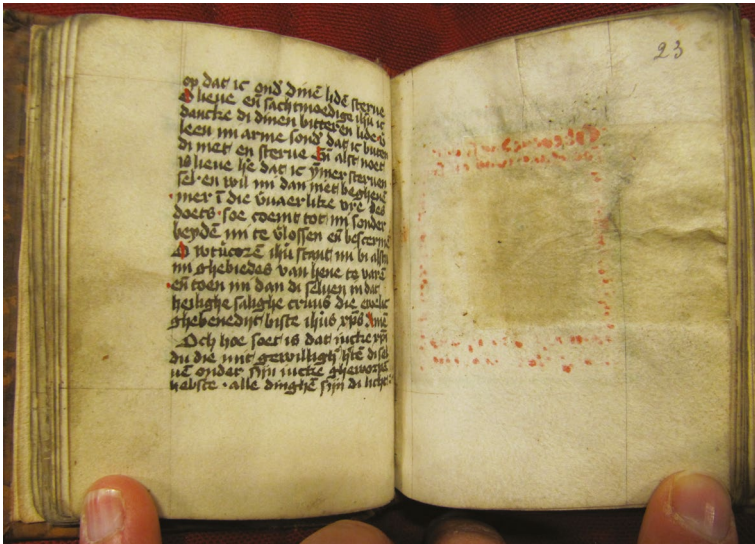 op dat ic ond dinē lidē sterue
O lieue eñ sachtmoedige ihū ic
dancke di dinen bitteren lidēs
leen mi arme sond dat ic buten
di niet en sterue Eñ alst noet
is lieue hē dat ic ymer steruen
sel en wil mi dan niet beghenē
mer ī die vuaerlike vre des
doets soe coemt tot mi sonder
beyden mi te vlossen eñ bescermē
O wtūcorē ihū stant mi bi alstu
mi ghebiedes van hene te varē
eñ toen mi dan di seluen in dat
heilighe salighe cruus die ewelic
ghebenedijt biste ihūs xp̄s Amē
Och hoe soet is dat iucke xp̄i
du die mit gewilligh hertē di sel
uē onder sijn iucke gheworpē
hebste · alle dinghē sijn di licht
23